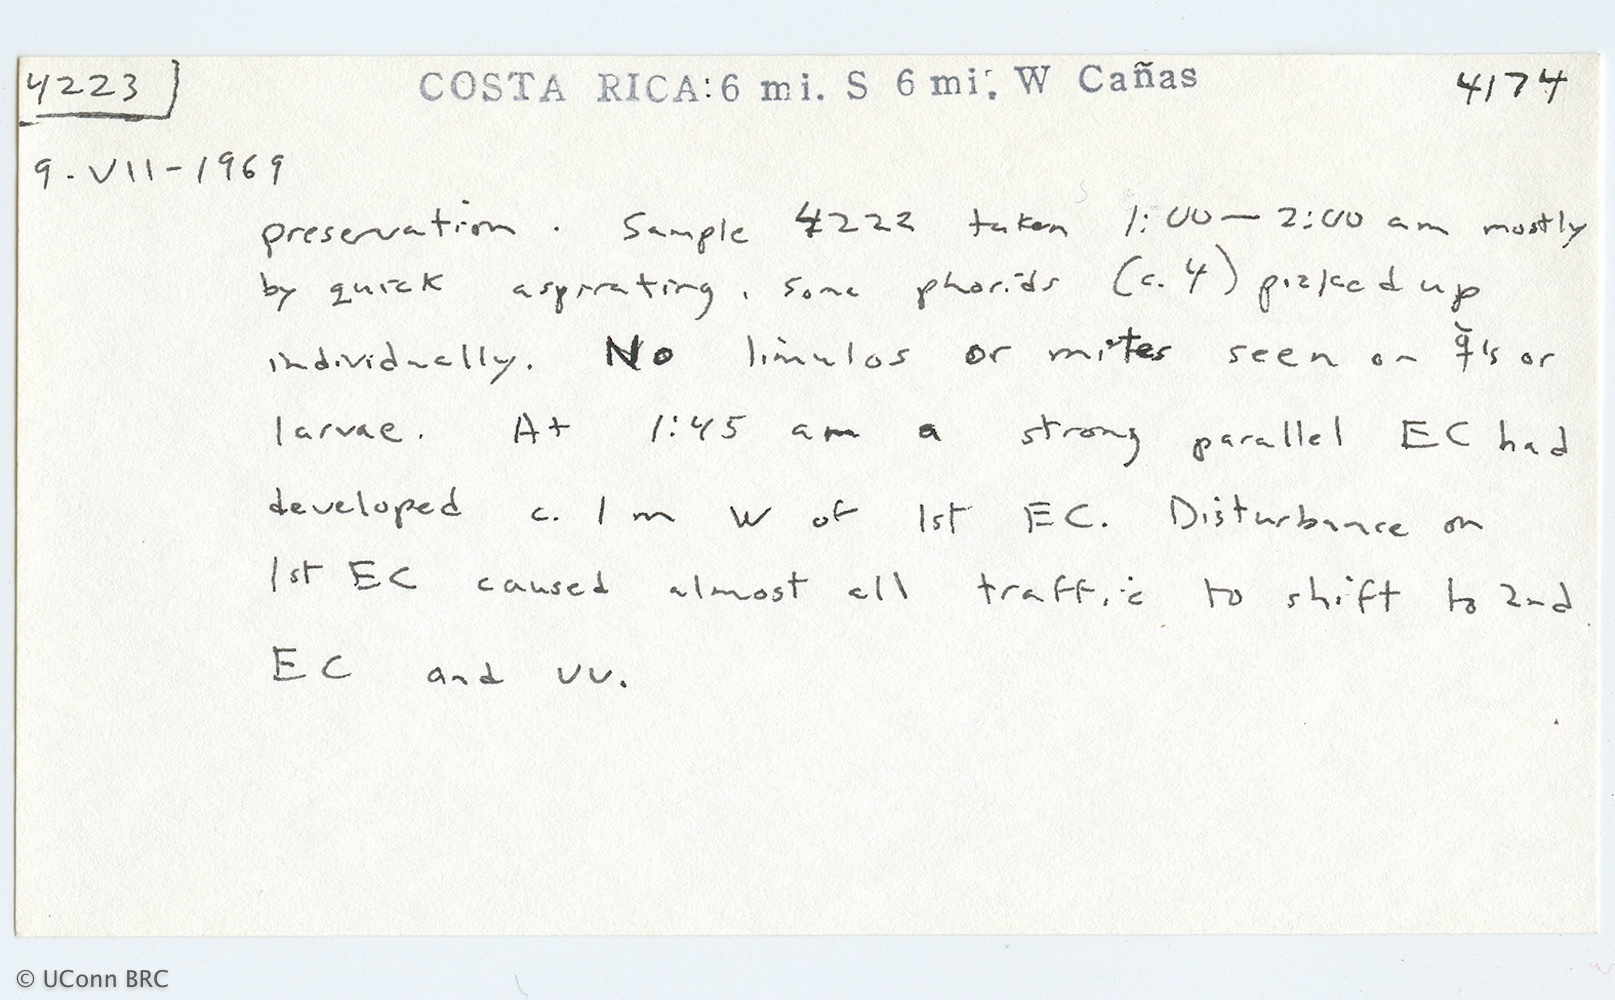 4223 COSTA RICA: 6 mi. S 6 mi. W Cañas 4174
9-VII-1969
preservation. Sample 4222 taken 1:00—2:00 am mostly
by quick aspirating, some phorids (c. 4) picked up
individually. No limulos or mites seen on ☿'s or
larvae. At 1:45 am a strong parallel EC had
developed c. 1 m W of 1st EC. Disturbance on
1st EC caused almost all traffic to shift to 2nd
EC and vv.
© UConn BRC